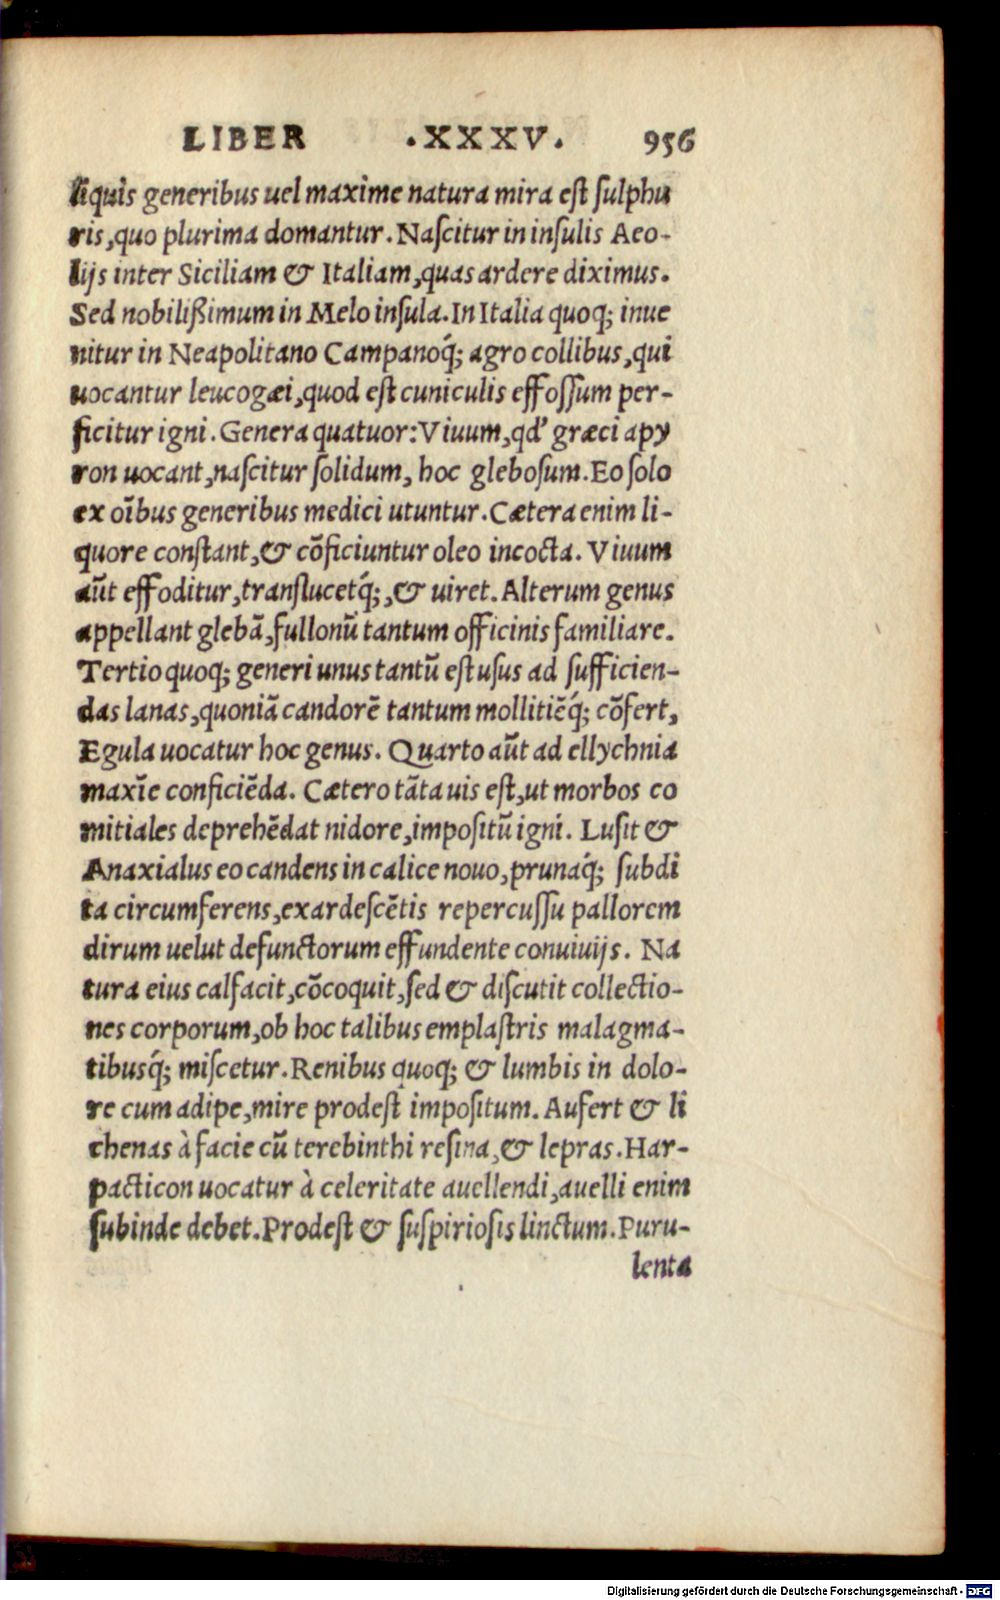 LIBER .XXXV. 956
liquis generibus uel maxime natura mira est sulphu
ris,quo plurima domantur. Nascitur in insulis Aeo-
lijs inter Siciliam & Italiam,quas ardere diximus.
Sed nobilißimum in Melo insula. In Italia quoq; inue
nitur in Neapolitano Campanoq́; agro collibus,qui
uocantur leucogæi,quod est cuniculis effossum per-
ficitur igni. Genera quatuor: Viuum,qd' græci apy
ron uocant,nascitur solidum, hoc glebosum. Eo solo
ex oībus generibus medici utuntur. Cætera enim li-
quore constant,& cōficiuntur oleo incocta. Viuum
aūt effoditur,translucetq́;,& uiret. Alterum genus
appellant glebā,fullonū tantum officinis familiare.
Tertio quoq; generi unus tantū est usus ad sufficien-
das lanas,quoniā candorē tantum mollitiēq́; cōfert,
Egula uocatur hoc genus. Quarto aūt ad ellychnia
maxīe conficiēda. Cætero tāta uis est,ut morbos co
mitiales deprehēdat nidore,impositū igni. Lusit &
Anaxialus eo candens in calice nouo,prunaq́; subdi
ta circumferens,exardescētis repercussu pallorem
dirum uelut defunctorum effundente conuiuijs. Na
tura eius calfacit,cōcoquit,sed & discutit collectio-
nes corporum,ob hoc talibus emplastris malagma-
tibusq́; miscetur. Renibus quoq; & lumbis in dolo-
re cum adipe,mire prodest impositum. Aufert & li
chenas à facie cū terebinthi resina,& lepras. Har-
pacticon uocatur à celeritate auellendi,auelli enim
subinde debet. Prodest & suspiriosis linctum. Puru-
lenta
Digitalisierung gefördert durch die Deutsche Forschungsgemeinschaft - DFG